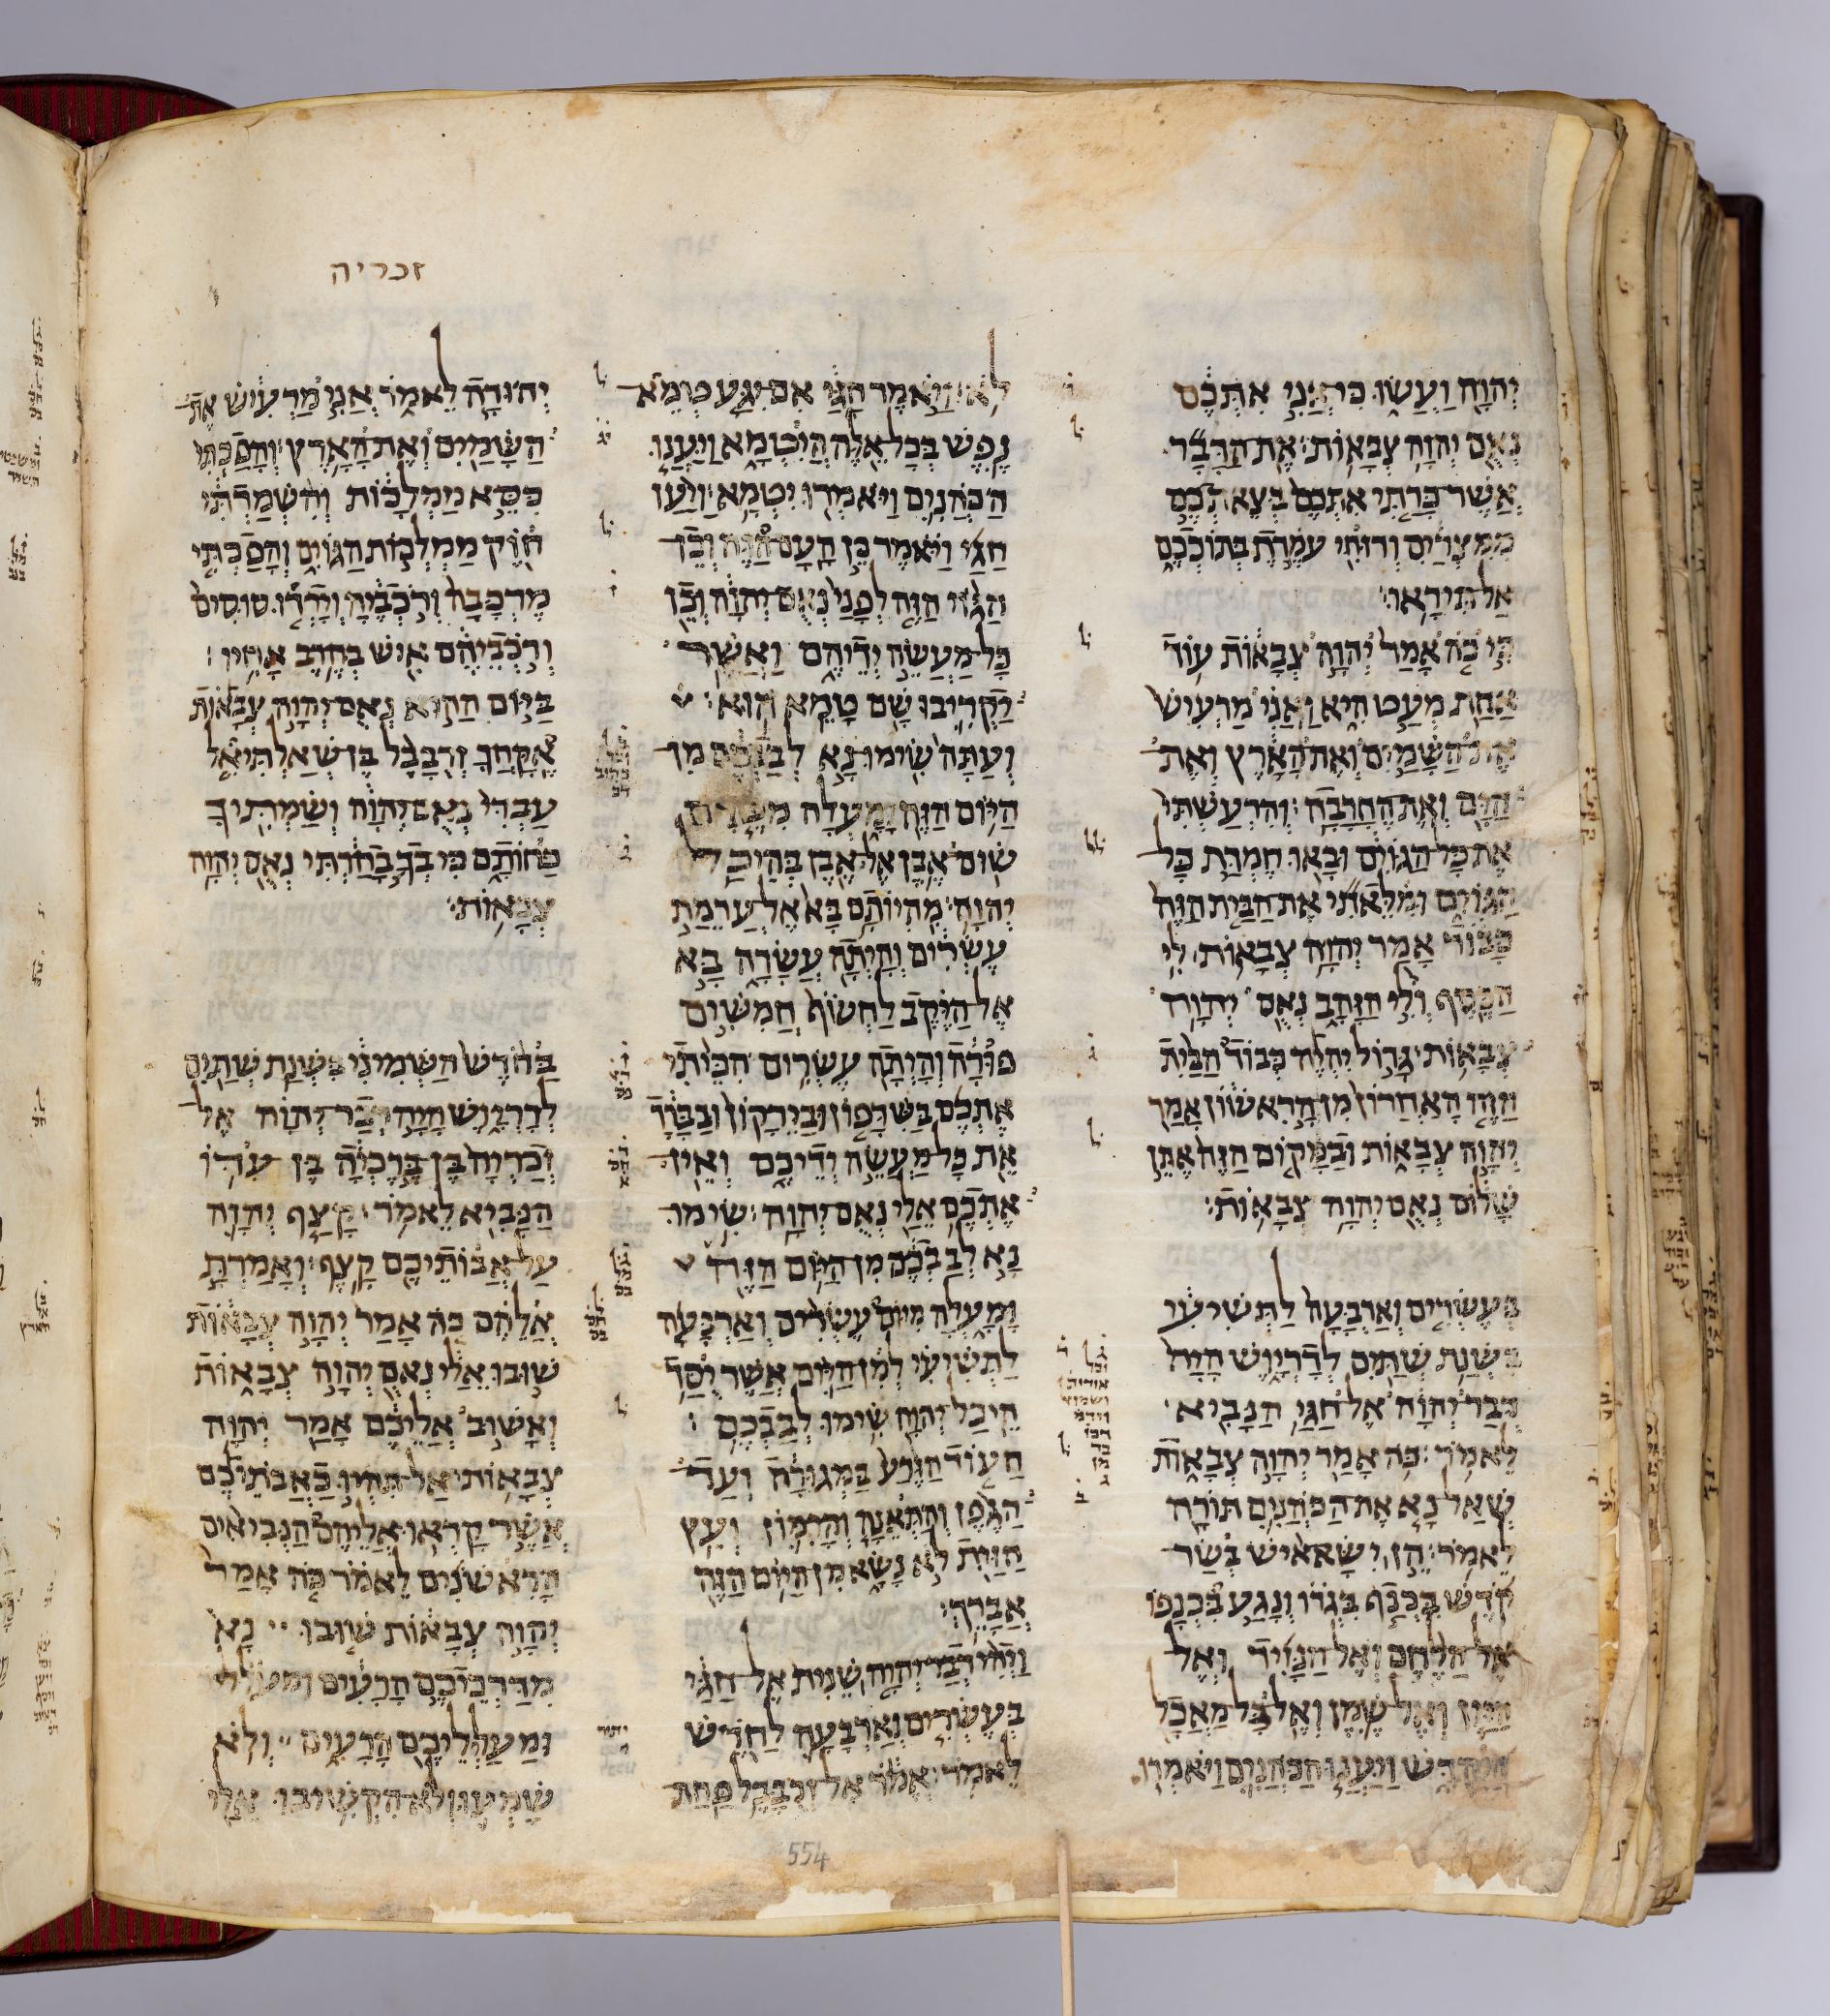 זכריה
יהוה ועשו כי אני אתכם
נאם יהוה צבאות את הדבר
אשר כרתי אתכם בצאתכם
ממצרים ורוחי עמדת בתוככם
אל תיראו
כי כה אמר יהוה צבאות עוד
אחת מעט היא ואני מרעיש
את השמים ואת הארץ ואת
הים ואת החרבה והרעשתי
את כל הגוים ובאו חמדת כל
הגוים ומלאתי את הבית הזה
כבוד אמר יהוה צבאות לי
הכסף ולי הזהב נאם יהוה
צבאות גדול יהיה כבוד הבית
הזה האחרון מן הראשון אמר
יהוה צבאות ובמקום הזה אתן
שלום נאם יהוה צבאות
בעשרים וארבעה לתשיעי
בשנת שתים לדריוש היה
דבר יהוה אל חגי הנביא
לאמר כה אמר יהוה צבאות
שאל נא את הכהנים תורה
לאמר הן ישא איש בשר
קדש בכנף בגדו ונגע בכנפו
אל הלחם ואל הנזיד ואל
היין ואל שמן ואל כל מאכל
היקדש ויענו הכהנים ויאמרו
לא ויאמר חגי אם יגע טמא
נפש בכל אלה היטמא ויענו
הכהנים ויאמרו יטמא ויען
חגי ויאמר כן העם הזה וכן
הגוי הזה לפני נאם יהוה וכן
כל מעשה ידיהם ואשר
יקריבו שם טמא הוא
ועתה שימו נא לבבכם מן
היום הזה ומעלה מטרם
שום אבן אל אבן בהיכל
יהוה מהיותם בא אל ערמת
עשרים והיתה עשרה בא
אל היקב לחשוף חמשים
פורה והיתה עשרים הכיתי
אתכם בשדפון ובירקון ובברד
את כל מעשה ידיכם ואין
אתכם אלי נאם יהוה שימו
נא לבבכם מן היום הזה
ומעלה מיום עשרים וארבעה
לתשיעי למן היום אשר יסד
היכל יהוה שימו לבבכם
העוד הזרע במגורה ועד
הגפן והתאנה והרמון ועץ
הזית לא נשא מן היום הזה
אברך
ויהי דבר יהוה שנית אל חגי
בעשרים וארבעה לחדש
לאמר אמר אל זרבבל פחת
יהודה לאמר אני מרעיש את
השמים ואת הארץ והפכתי
כסא ממלכות והשמדתי
חוזק ממלכות הגוים והפכתי
מרכבה ורכביה וירדו סוסים
ורכביהם איש בחרב אחיו
ביום ההוא נאם יהוה צבאות
אקחך זרבבל בן שאלתיאל
עבדי נאם יהוה ושמתיך
כחותם כי בך בחרתי נאם יהוה
צבאות
בחדש השמיני בשנת שתים
לדריוש היה דבר יהוה אל
זכריה בן ברכיה בן עדו
הנביא לאמר קצף יהוה
על אבותיכם קצף ואמרת
אלהם כה אמר יהוה צבאות
שובו אלי נאם יהוה צבאות
ואשוב אליכם אמר יהוה
צבאות אל תהיו כאבתיכם
אשר קראו אליהם הנביאים
הראשנים לאמר כה אמר
יהוה צבאות שובו נא
מדרכיכם הרעים
ומעלליכם הרעים ולא
שמעו ולא הקשיבו אלי
554